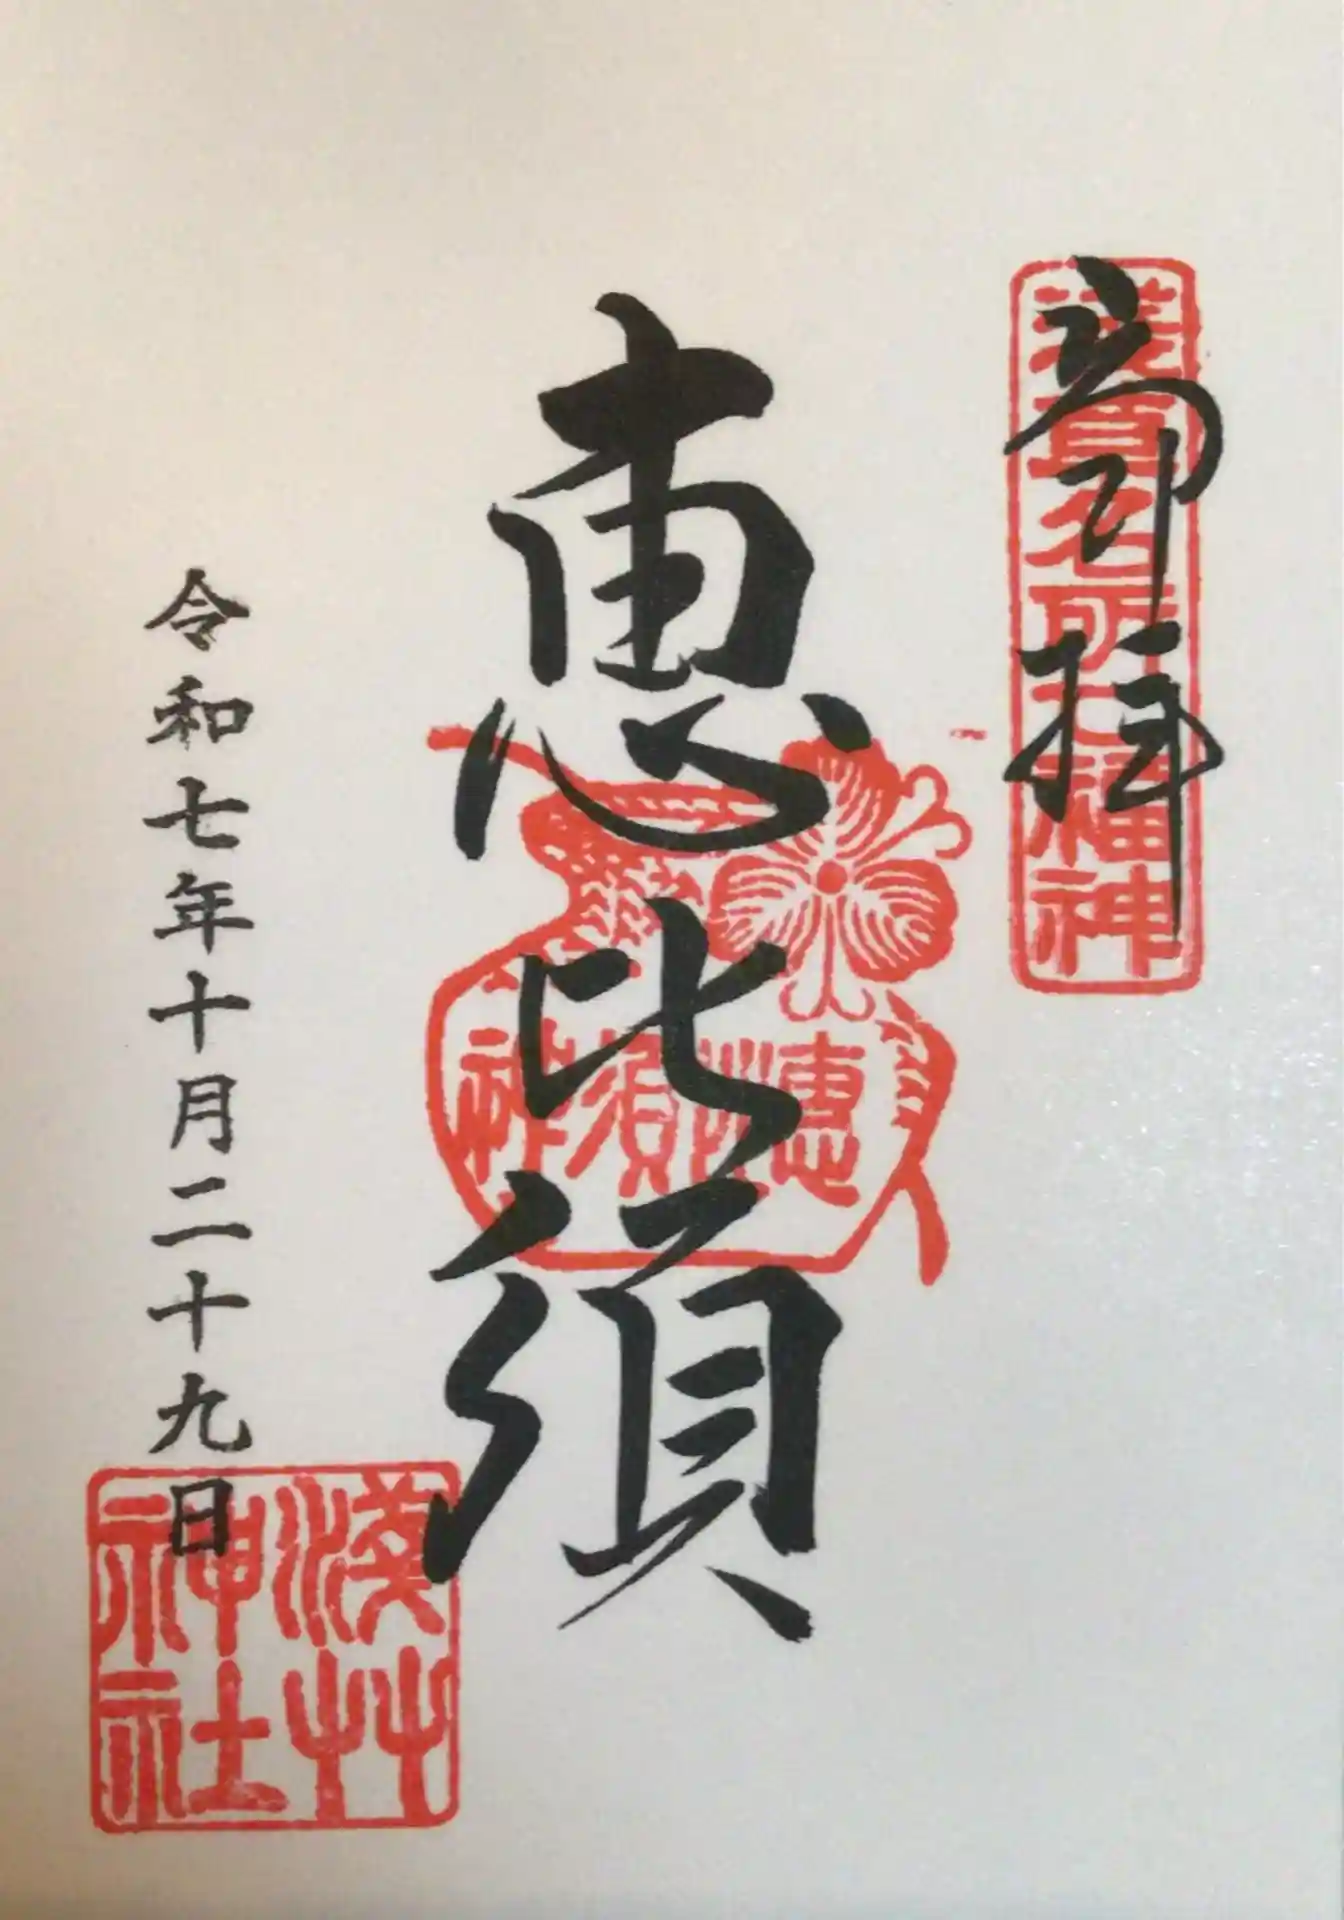 奉拝
浅草名所七福神
恵比須
恵比須神
令和七年十月二十九日
浅草
神社